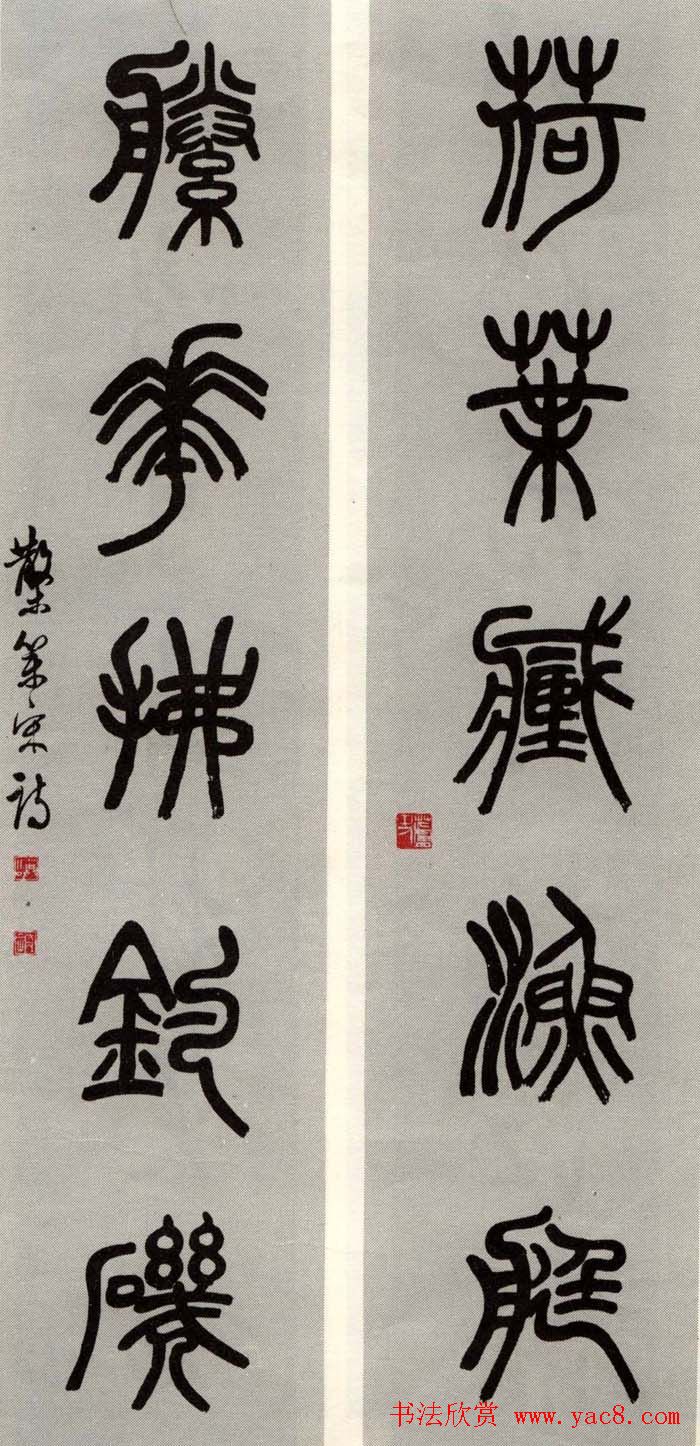 荷葉藏漁艇
縢華拂釣磯
散木篆宋詩
书法欣赏 www.yac8.com